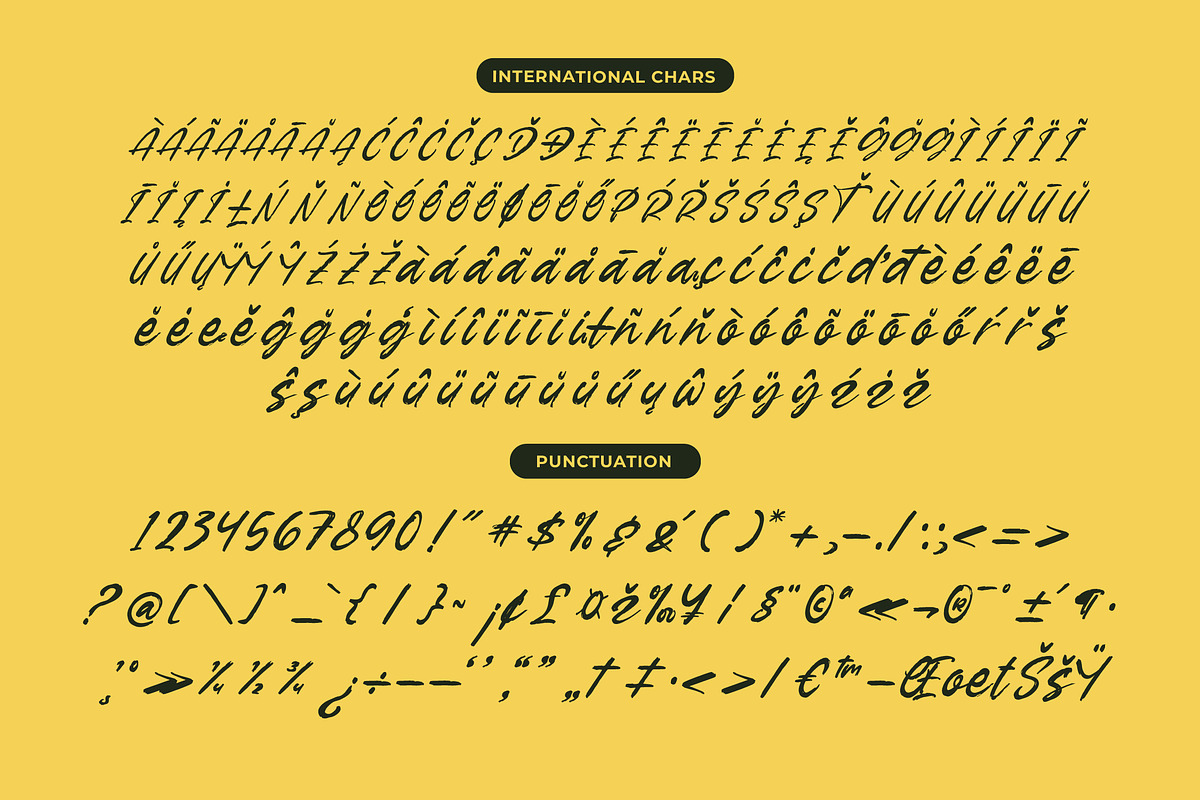 INTERNATIONAL CHARS
ÀÁÃÄÅĀĂĄĆĈĊČÇĎĐÈÉÊËĒĔĖĘĚĜĞĠÌÍÎÏĨ
ĪĬĮİŁŃŇÑÈéêẽëø̸ēĕőPŔŘŠŚŜŞŤÙÚÛÜŨŪŬ
ŮŰŲŸÝŶŹŻŽàáâãäåāăąçćĉċčďđèéêëē
ĕėęěĝğġģìíîïĩīĭįłñńňòóôõöōŏőŕřš
ŝşùúûüũūŭůűųŵýÿŷźżž
PUNCTUATION
1234567890!"#$%&'()*+,-./:;<=>
?@[\]^_`{|}~¡¢£¤ž‰¥¦§¨©ª«¬®¯°±´¶·
¸¹º»¼½¾¿÷–—‘’‚“”„†‡·<>/€™−ŒoetŠšŸ